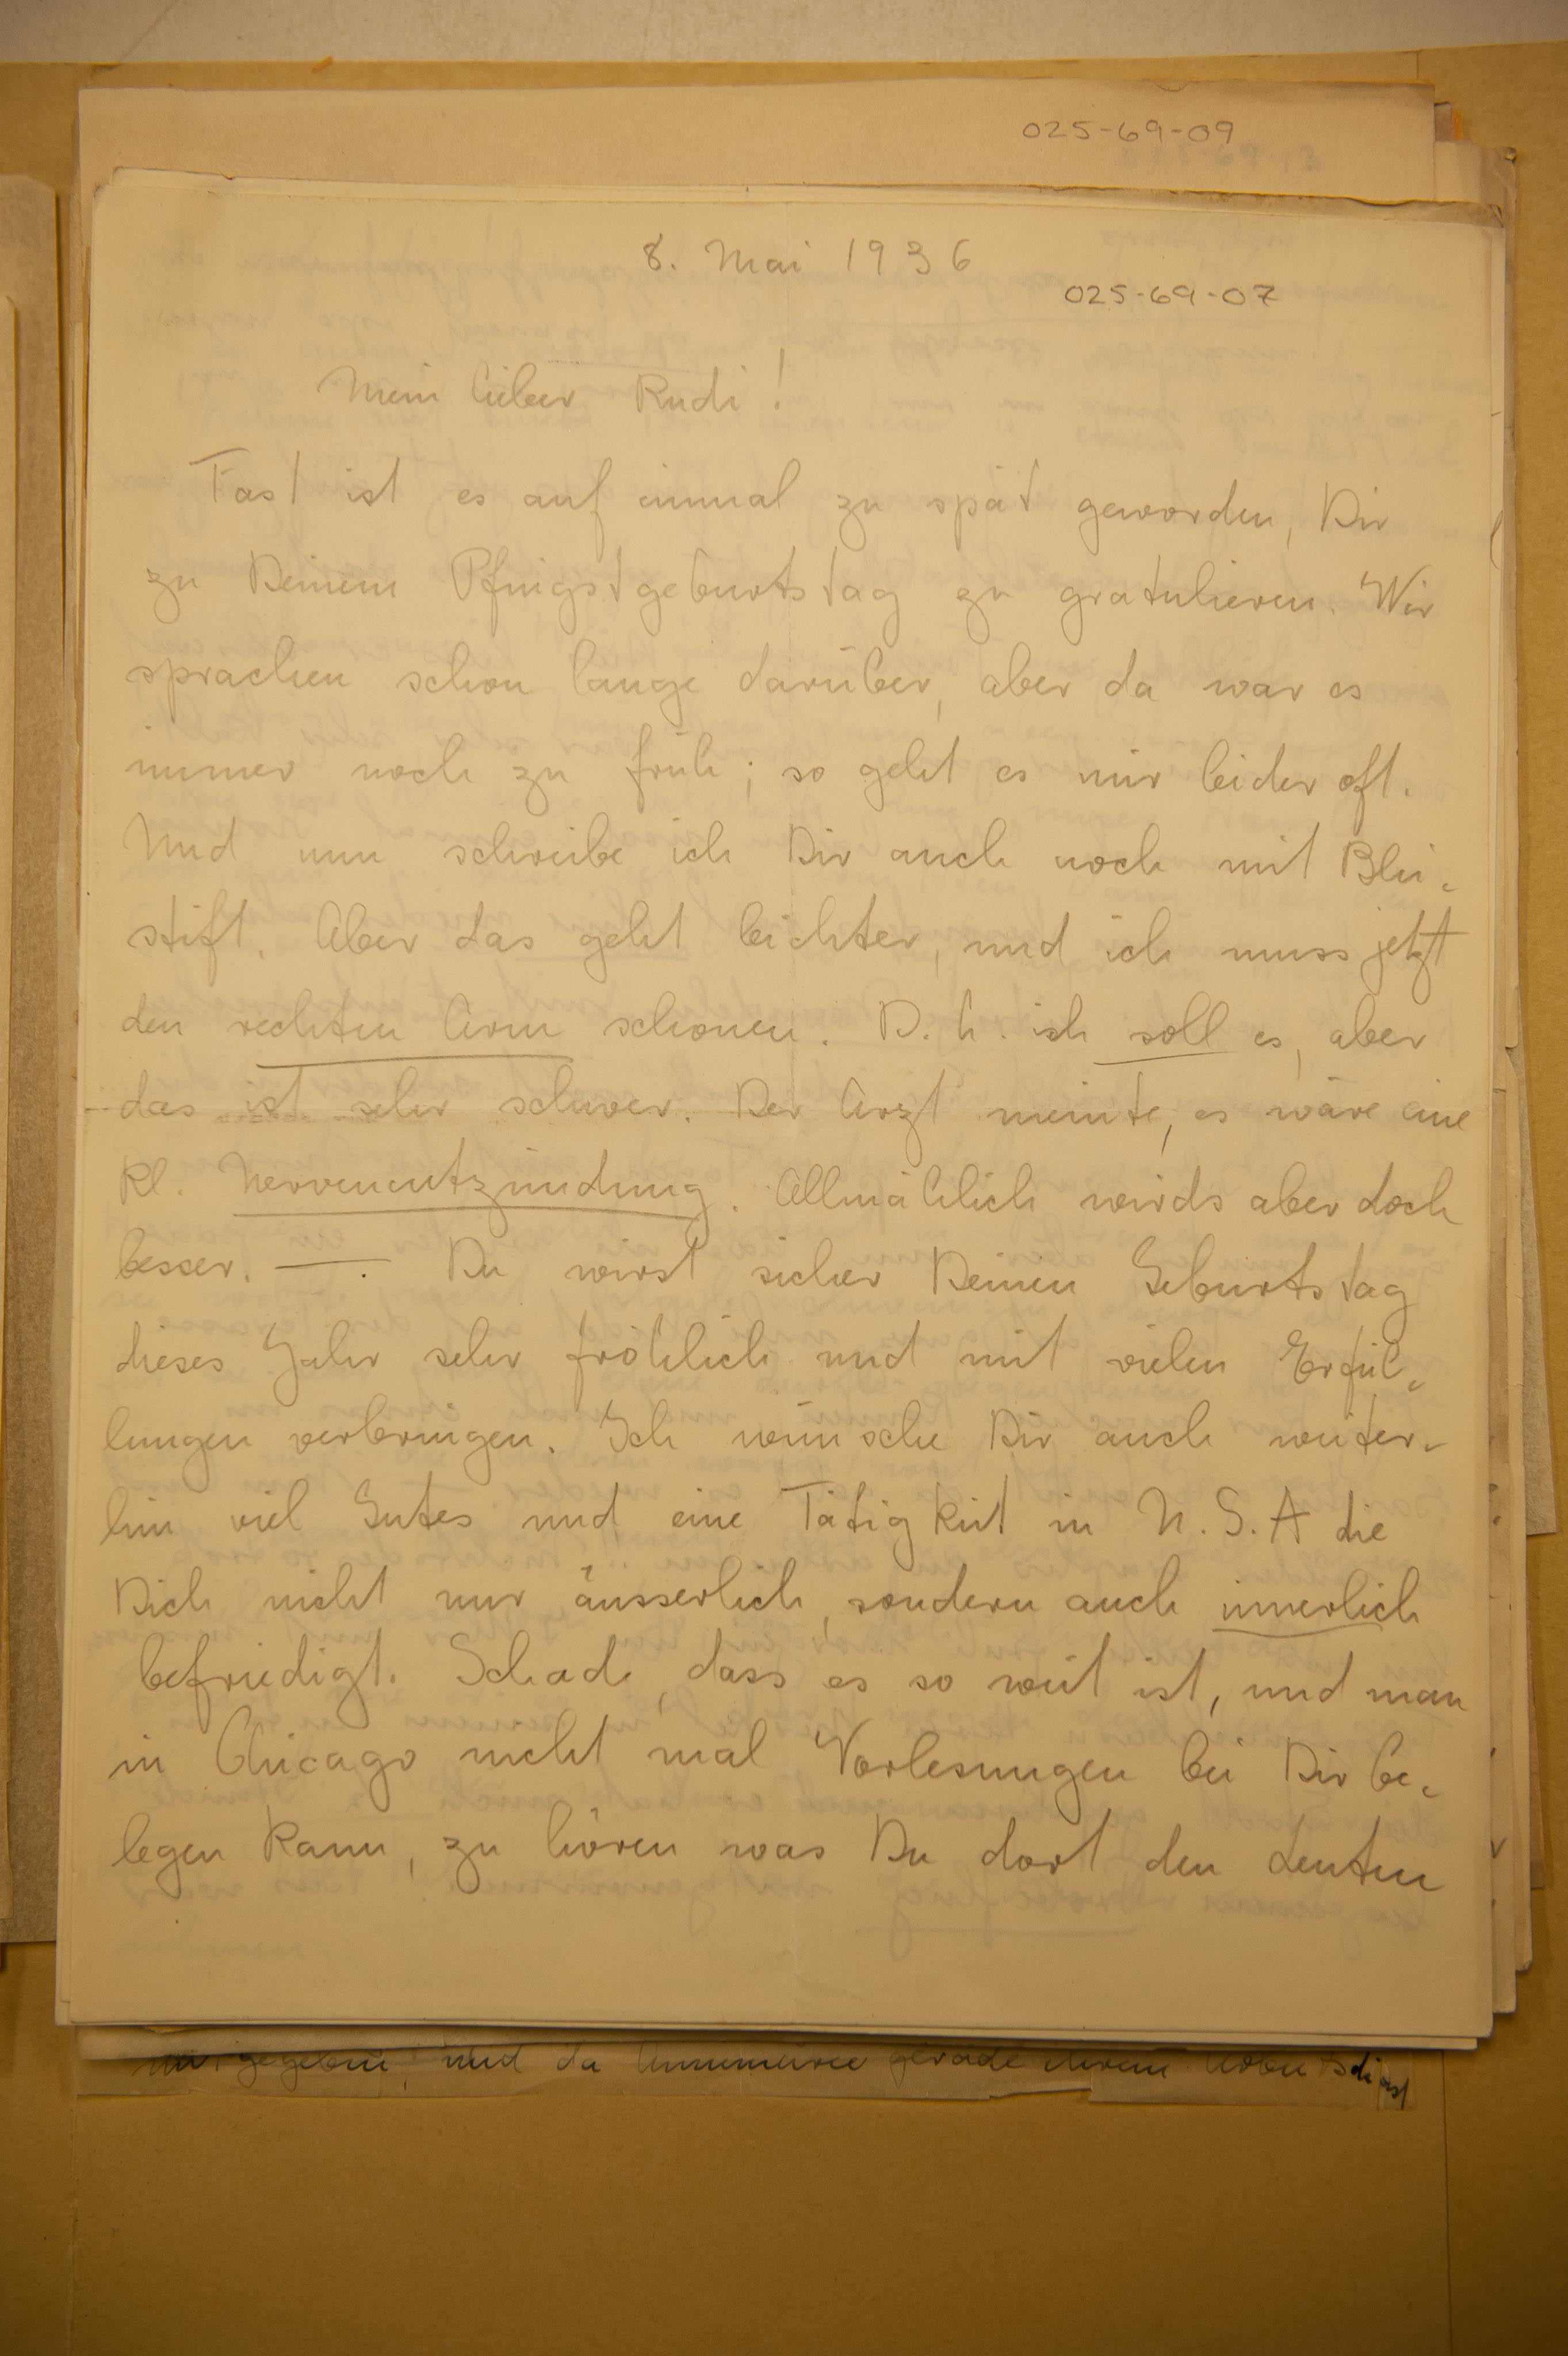 025-69-09
8. Mai 1936
025-69-07
Mein lieber Rudi!
Fast ist es auf einmal zu spät geworden, Dir
zu Deinem Pfingstgeburtstag zu gratulieren. Wir
sprachen schon lange darüber, aber da war es
immer noch zu früh; so geht es mir leider oft.
Und nun schreibe ich Dir auch noch mit Blei-
stift. Aber das geht leichter, und ich muss jetzt
den rechten Arm schonen. D. h. ich soll es, aber
das ist sehr schwer. Der Arzt meinte, es wäre eine
kl. Nervenentzündung. Allmählich wirds aber doch
besser. —. Du wirst sicher Deinen Geburtstag
dieses Jahr sehr fröhlich und mit vielen Erfül-
lungen verbringen. Ich wünsche Dir auch weiter-
hin viel Gutes und eine Tätigkeit in U.S.A die
Dich nicht nur äusserlich, sondern auch innerlich
befriedigt. Schade, dass es so weit ist, und man
in Chicago nicht mal Vorlesungen bei Dir be-
legen kann, zu hören was Du dort den Leuten
gegeben, und da Annemarie gerade ihren Arbeitsdienst